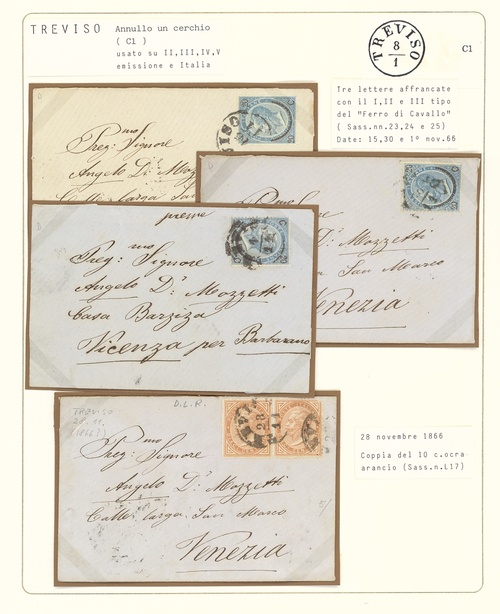 TREVISO Annullo un cerchio
( C1 )
usato su II,III,IV,V
emissione e Italia
TREVISO
8/
1
C1
Tre lettere affrancate
con il I,II e III tipo
del "Ferro di Cavallo"
( Sass.nn.23,24 e 25)
Date: 15,30 e 1° nov.66
Preg: mo Signore
Angelo D.r Moz
Calle larga San
D.r Mozzetti
San Marco
Venezia
preme
Preg: mo Signore
Angelo D.r Mozzetti
Casa Barziza
Vicenza per Barbarano
TREVISO
D.L.R.
Preg: mo Signore
Angelo D.r Mozzetti
Calle larga San Marco
Venezia
28
11
28 novembre 1866
Coppia del 10 c.ocra-
arancio (Sass.n.L17)